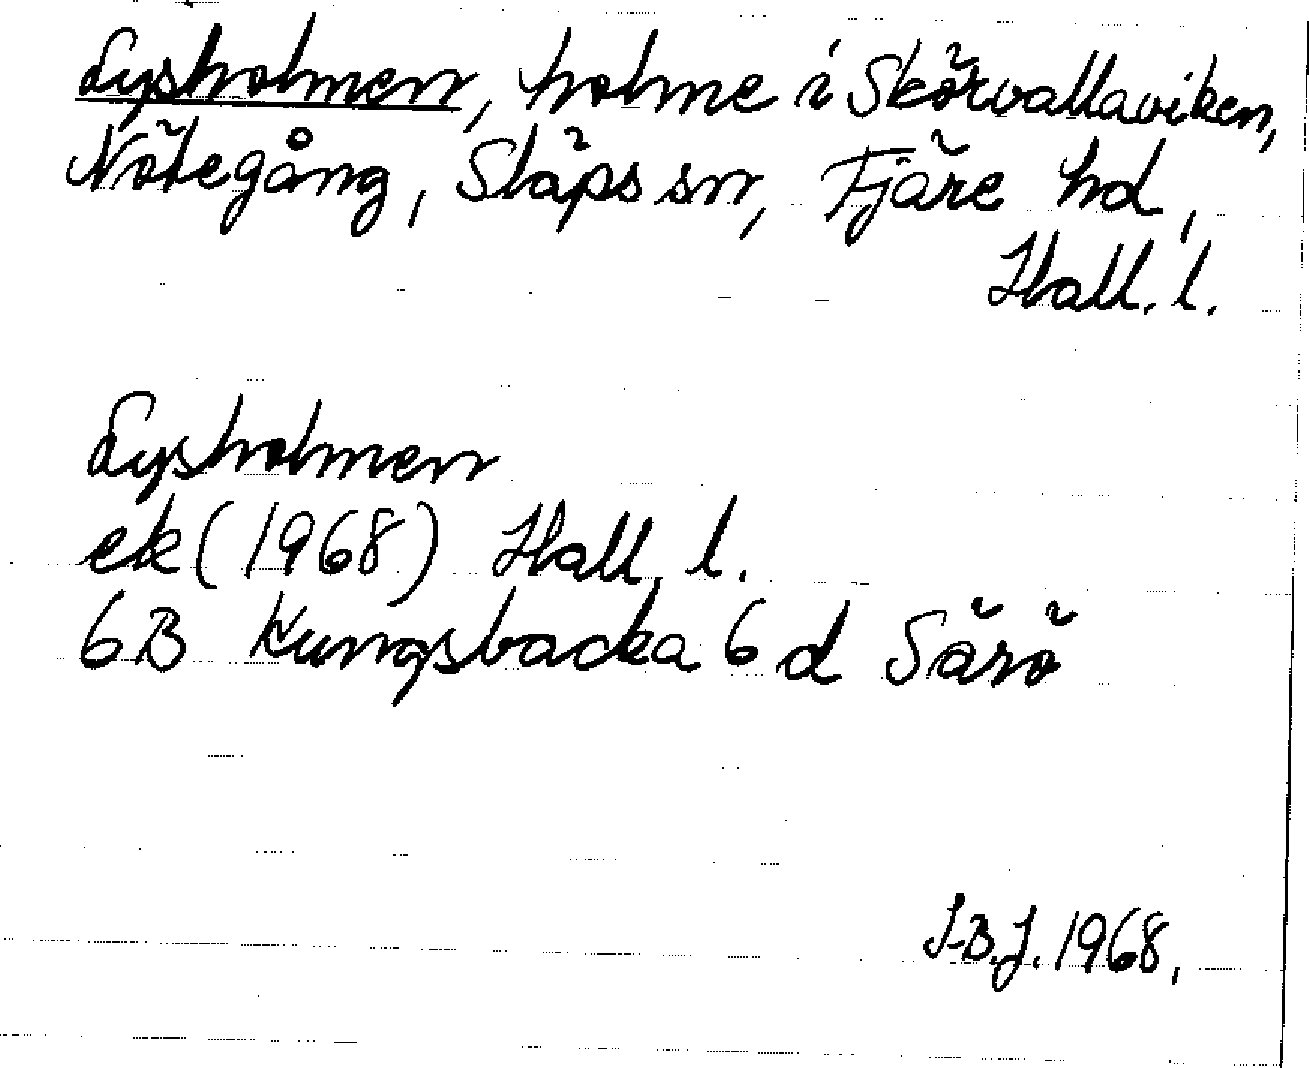 Lysholmen, holme i Skörvallaviken,
Nötegång, Släps sn, Fjäre hd,
Hall. l.
Lysholmen
ek (1968) Hall. l.
6B Kungsbacka 6 d Särö
I-B.J. 1968.